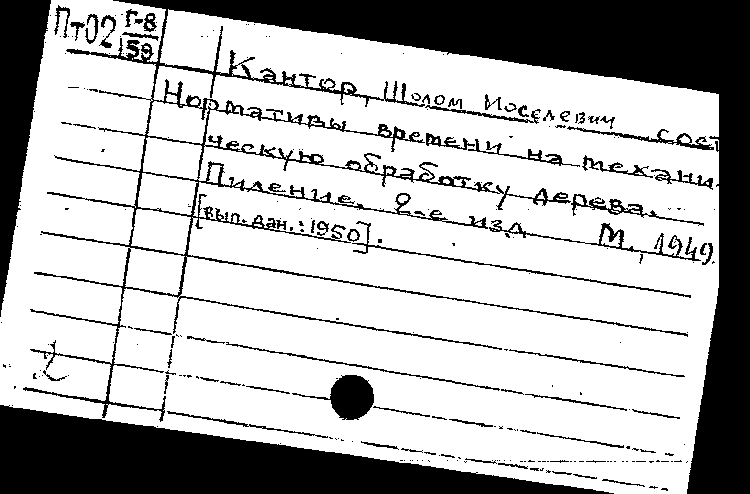 Пт02 Г-8
59
Кантор, Шолом Иоселевич сост
Нормативы времени на механи-
ческую обработку дерева.
Пиление. 2-е изд. М., 1949.
[вып. дан.: 1950].
2